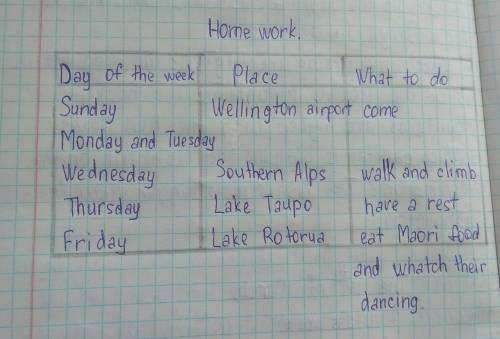 Home work.
Day of the week Place What to do
Sunday Wellington airport come
Monday and Tuesday
Wednesday Southern Alps walk and climb
Thursday Lake Taupo have a rest
Friday Lake Rotorua eat Maori food
and whatch their
dancing.